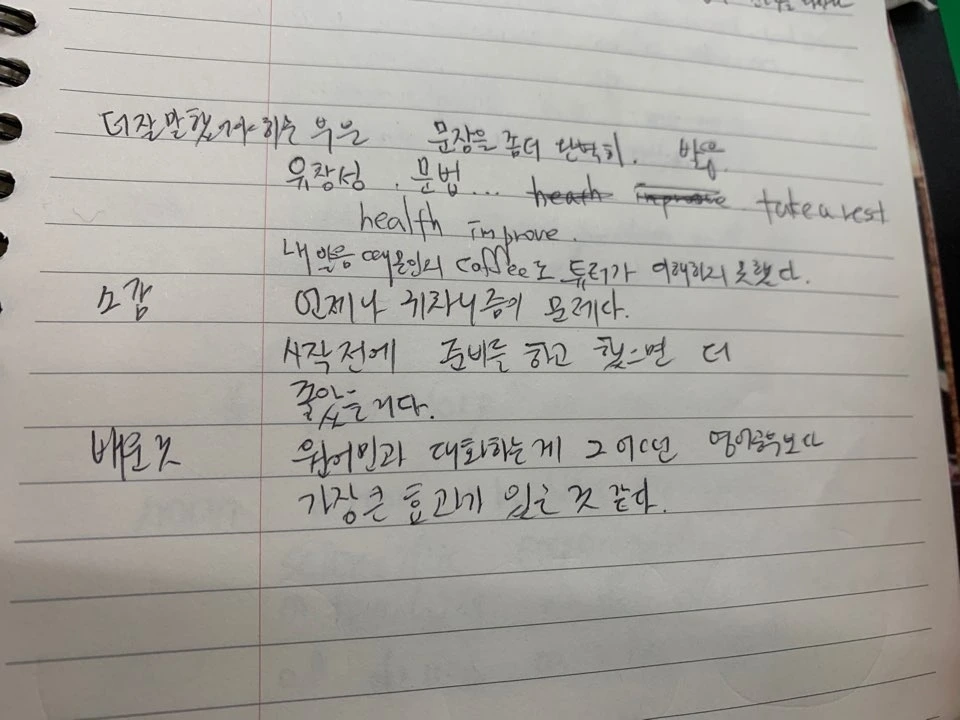 더 잘 말했 하는 문장을 좀더 발음
유창성. 문법... heath improve take a rest
health improve.
내 발음 때문인지 coffee도 튜터가 이해하지 못했다.
소감 언제나 귀차니즘이 문제다.
시작전에 준비를 하고 했으면 더
좋았을거다.
배운것 원어민과 대화하는게 그 어떤 영어공부보다
가장 큰 효과가 있는 것 같다.